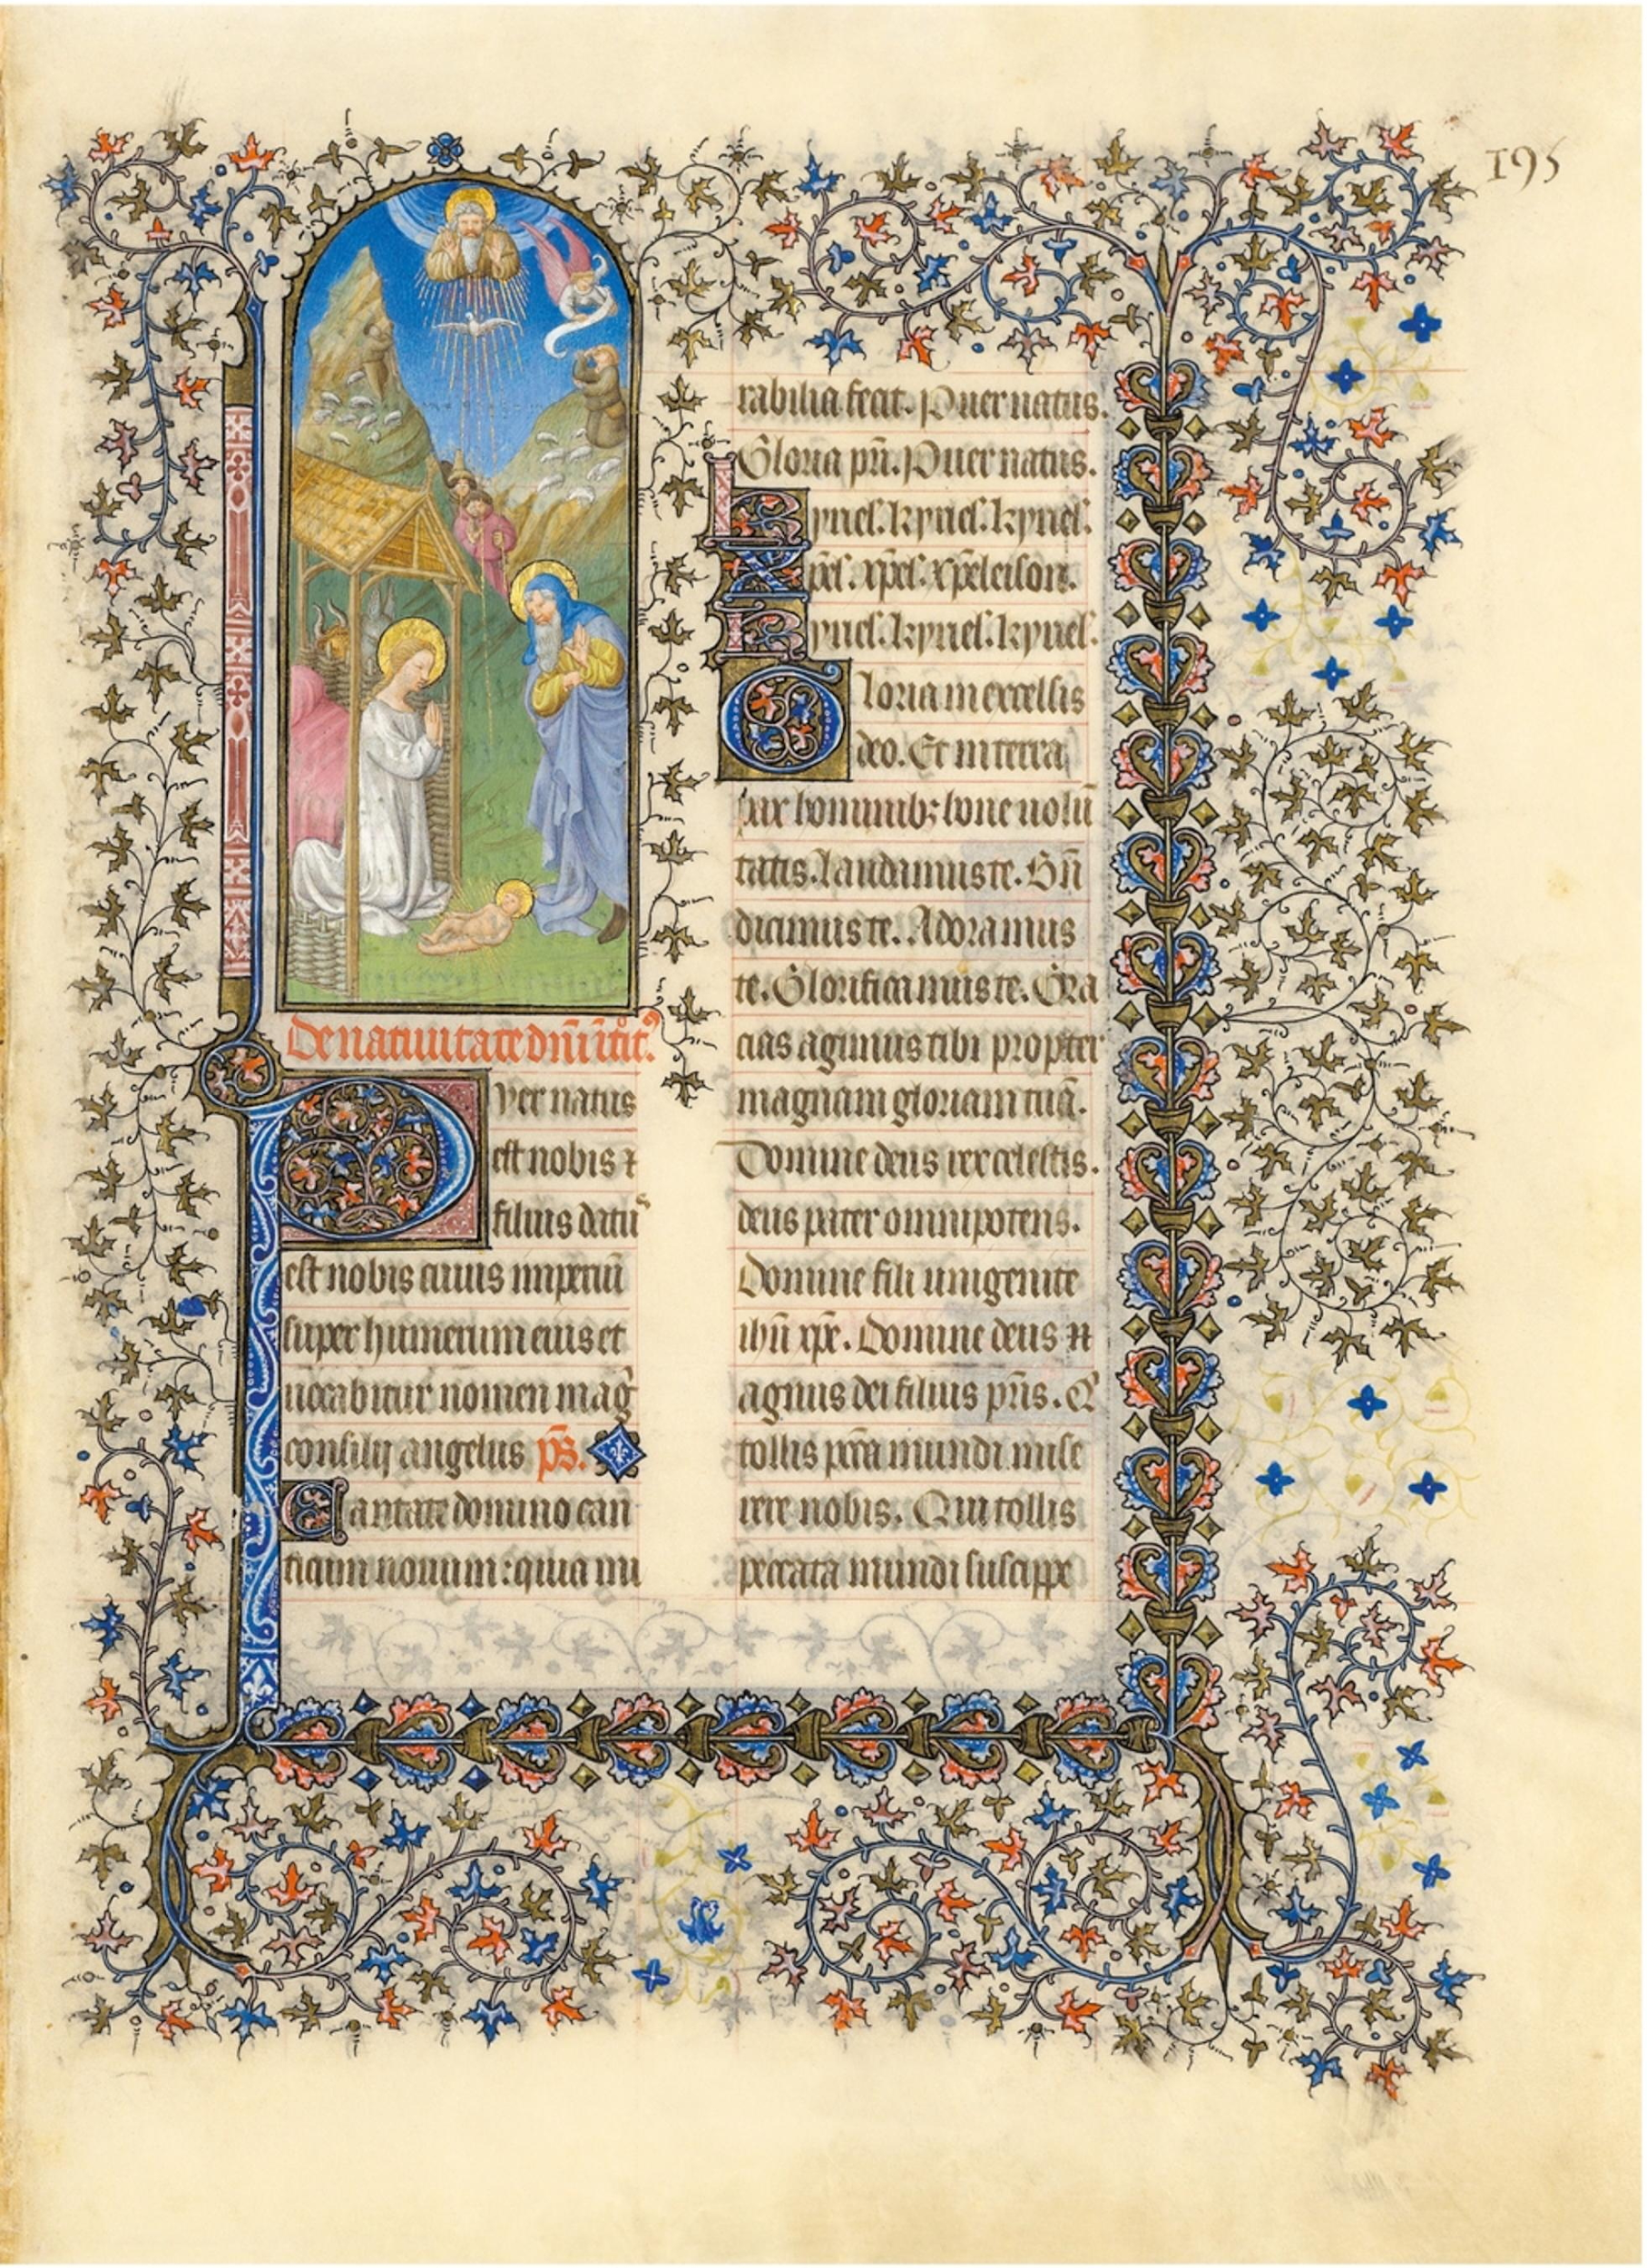 195
De natiuitate dñi ĩtroit᷒.
Puer natus
est nobis ⁊
filius datu᷒
est nobis cuius imperiũ
super humerum eius et
uocabitur nomen mag̃
consilij angelus p̃s.
Cantate domino can
ticum nouum: quia mi
rabilia fecit. Puer natus.
Gloria pr̃i. Puer natus.
Kyriel̃. kyriel̃. kyriel̃.
Xp̃el̃. xp̃el̃. xp̃eleison.
Kyriel̃. kyriel̃. kyriel̃.
Gloria in excelsis
deo. Et in terra
pax hominib; bone uolũ
tatis. laudamus te. Bñ
dicimus te. Adoramus
te. Glorificamus te. Gra
cias agimus tibi propter
magnam gloriam tuã.
Domine deus rex celestis.
deus pater omnipotens.
Domine fili unigenite
ihũ xp̃e. Domine deus
agnus dei filius pr̃is. Q̃
tollis pc̃ca mundi mise
rere nobis. Qui tollis
peccata mundi suscipe